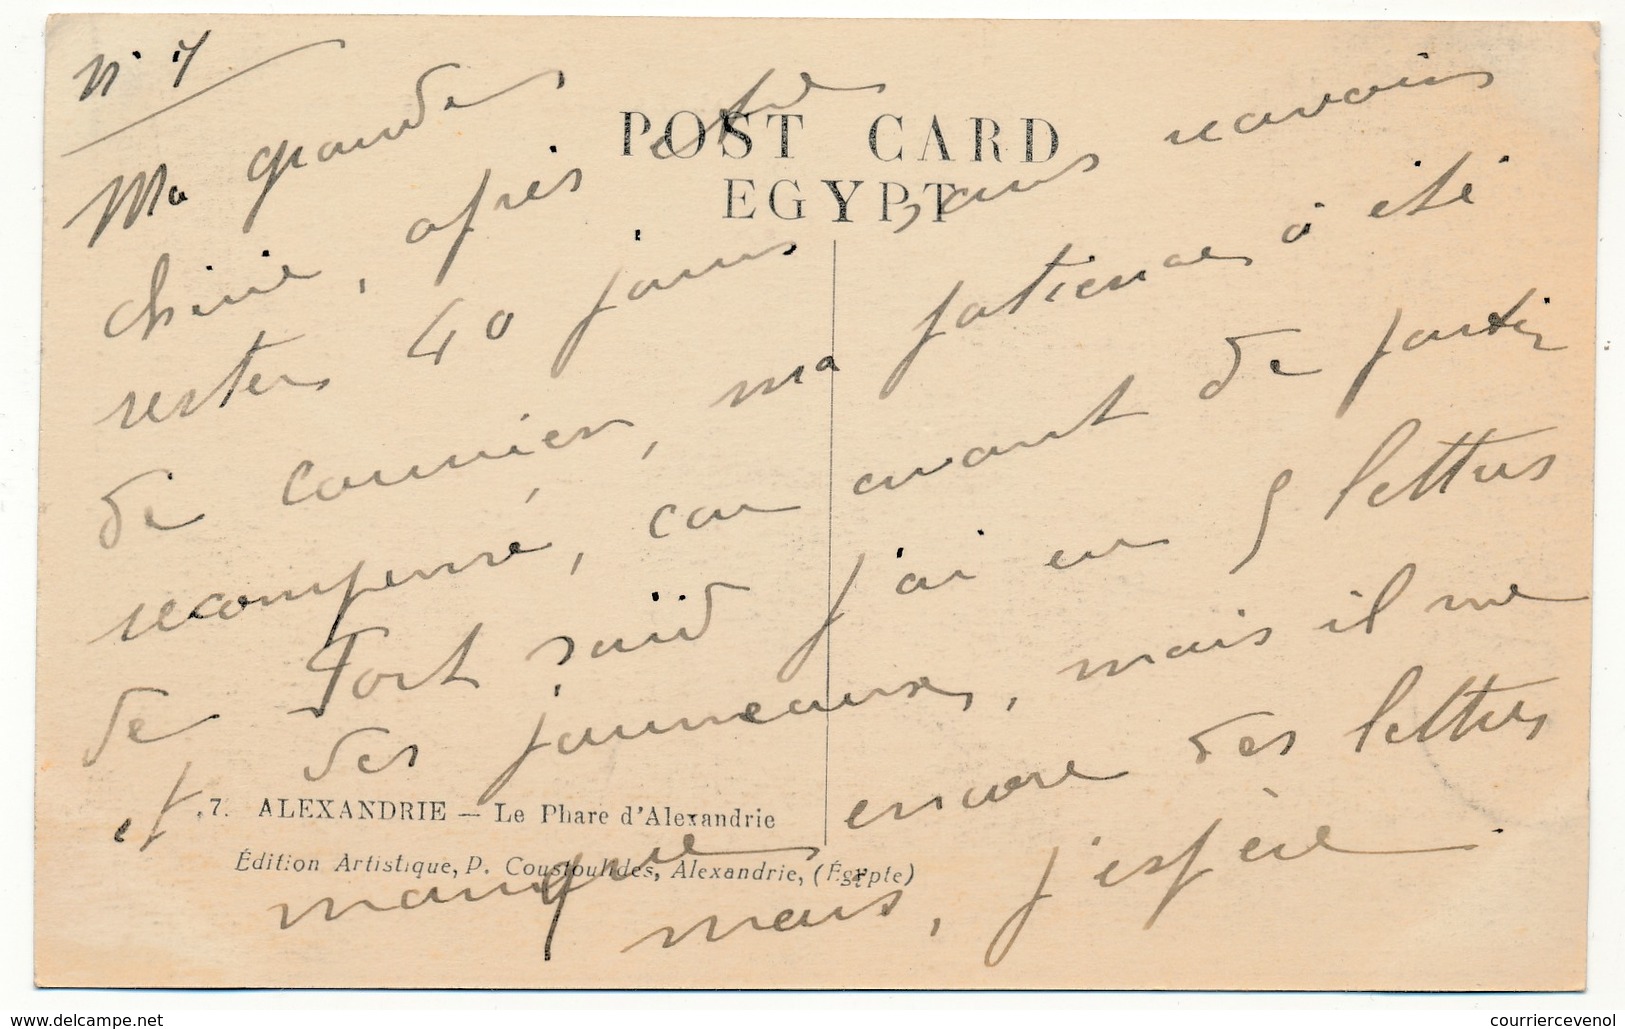 N° 7
POST CARD
EGYPT
Ma grande
chérie, après être
rester 40 jours sans ravoir
de courrier, ma patience à été
recompensé, car avant de partir
de Port Saïd j'ai eu 5 lettres
et des journeaux, mais il me
manque encore des lettres
mais, j'espère
7. ALEXANDRIE — Le Phare d'Alexandrie
Édition Artistique, P. Coustoulides, Alexandrie, (Égypte)
www.delcampe.net
courriercevenol